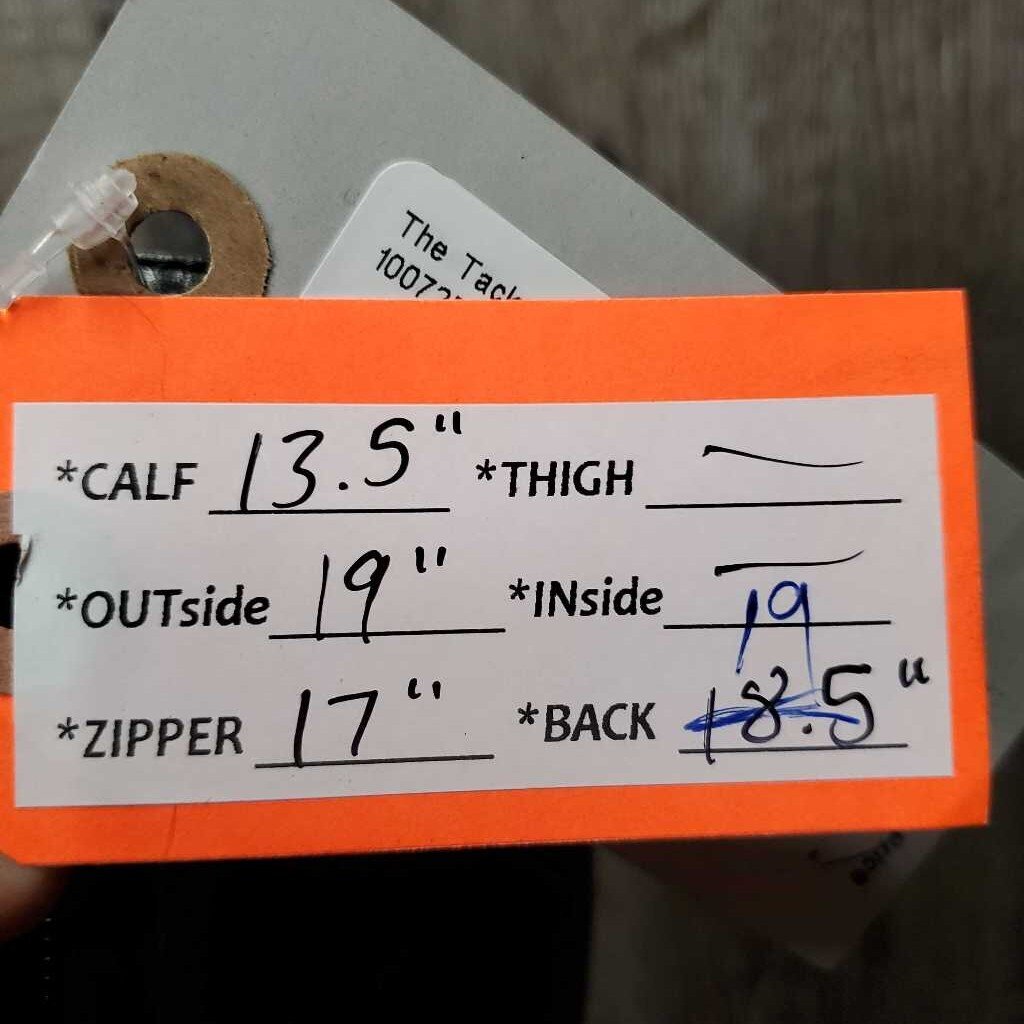 The Tack
10072
*CALF 13.5" *THIGH —
*OUTside 19" *INside —
19
*ZIPPER 17" *BACK 18.5"